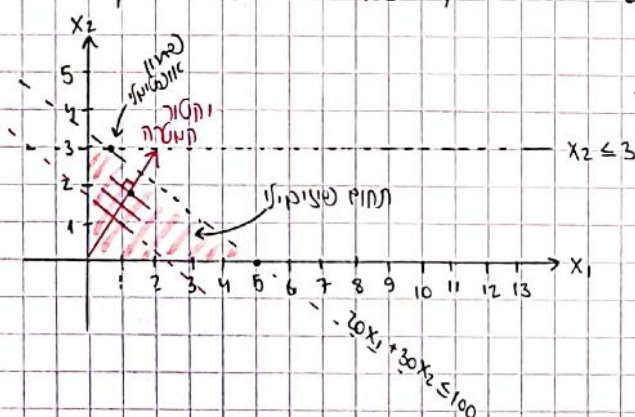 X₂
פתרון
אופטימלי
וקטור
המטרה
5
4
3
2
1
X₂ ≤ 3
תחום פיזיבילי
X₁
1 2 3 4 5 6 7 8 9 10 11 12 13
20X₁ + 30X₂ ≤ 100